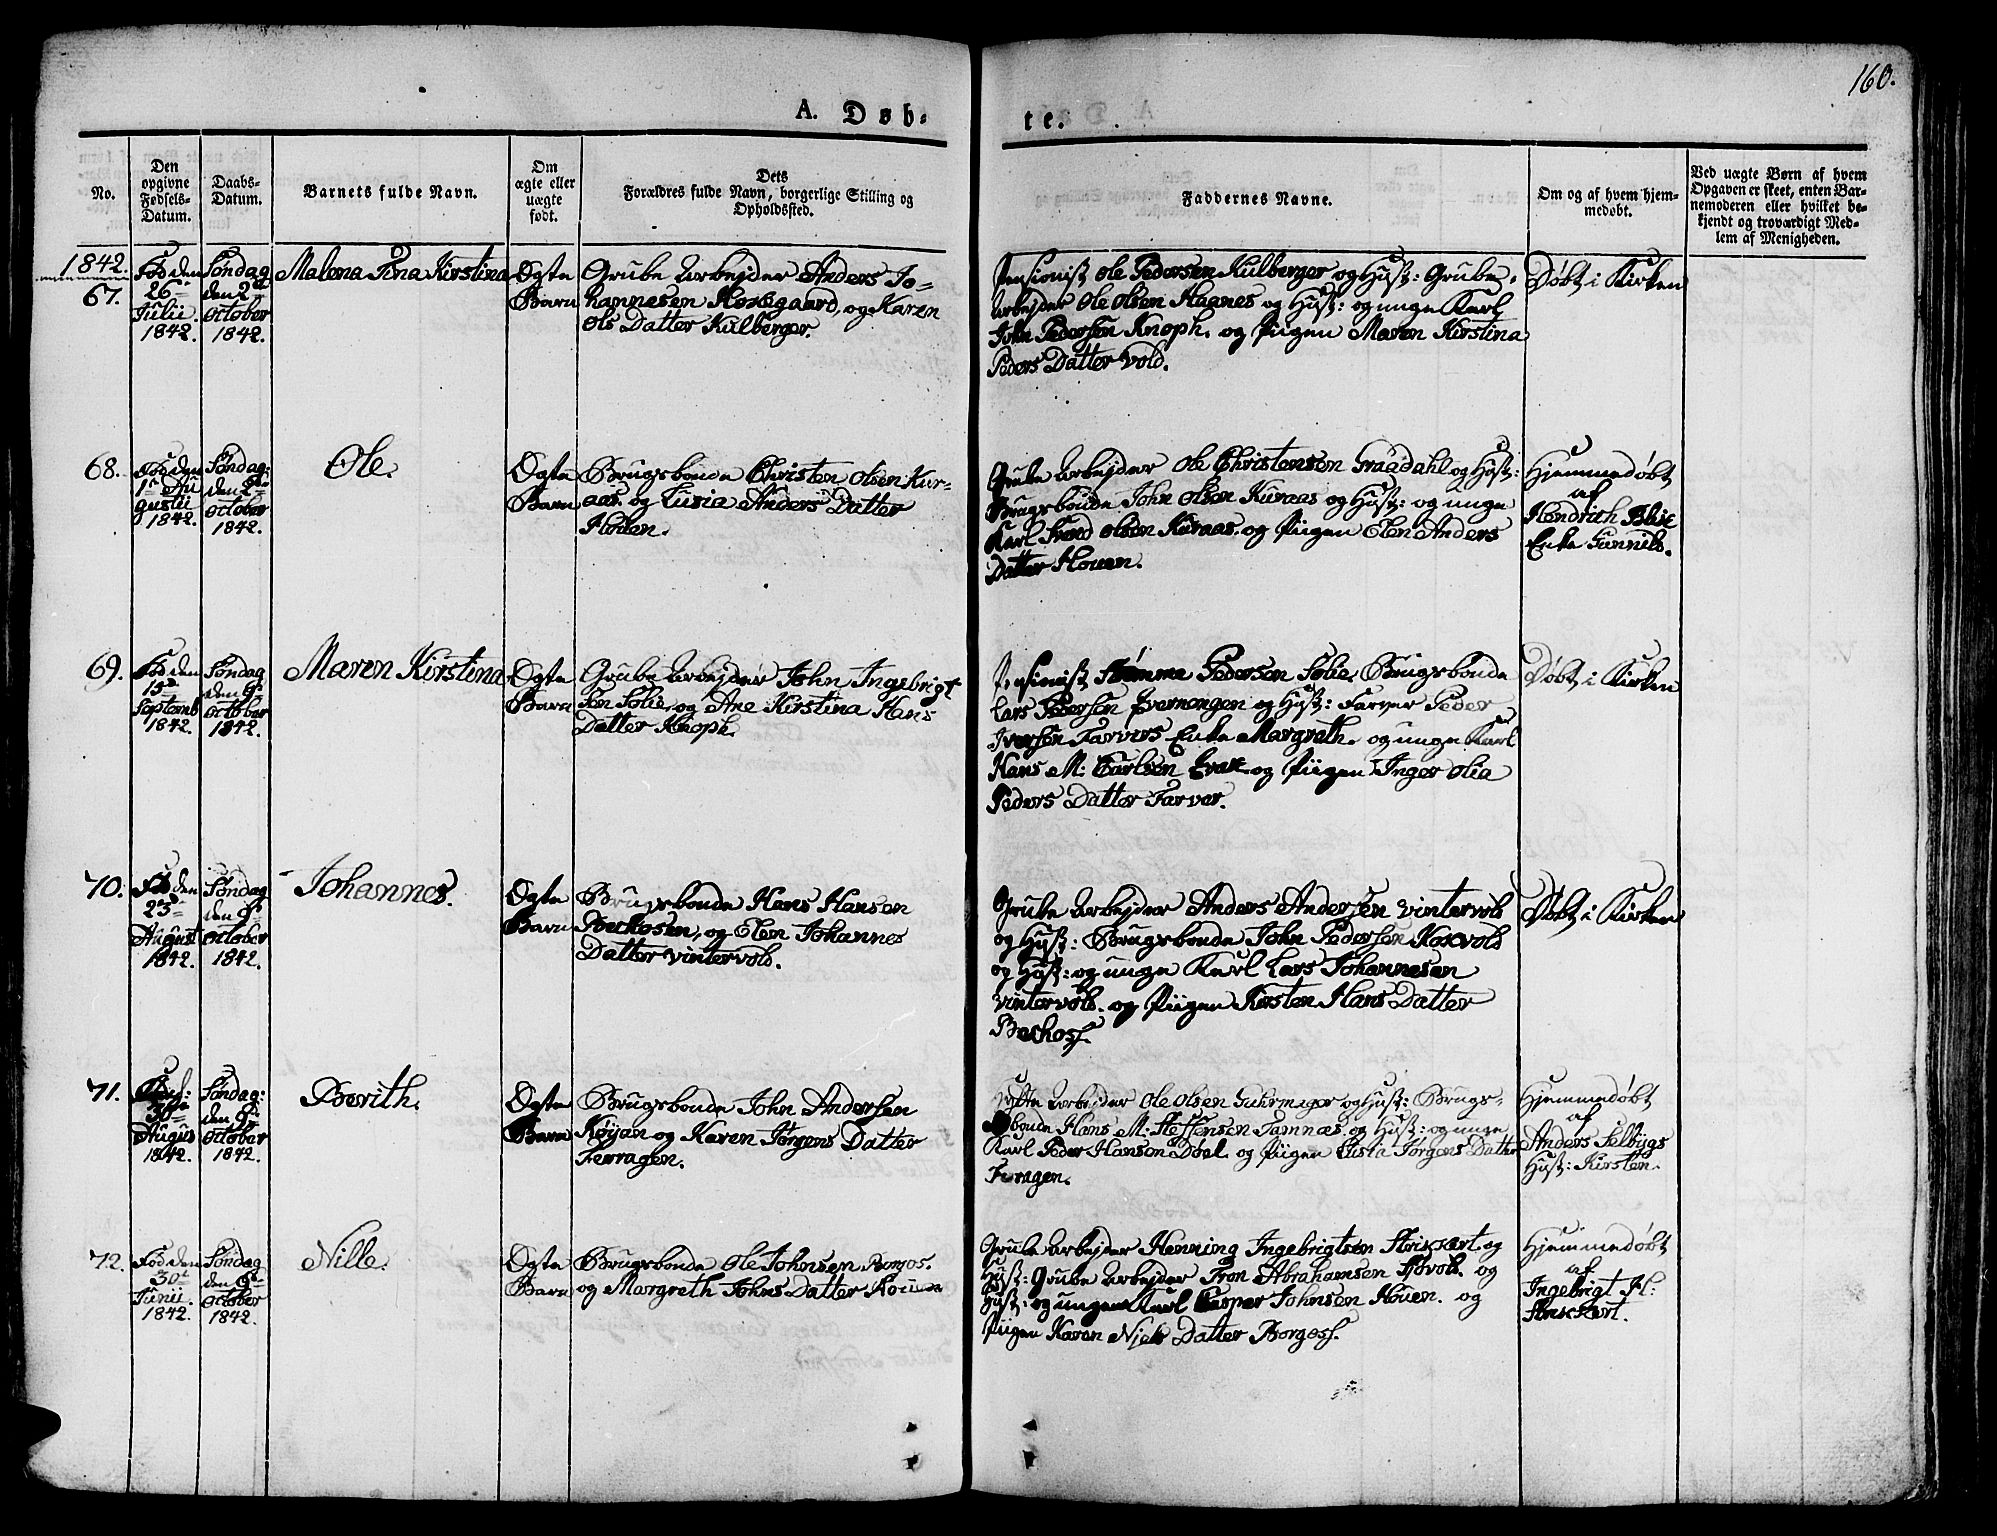 160.
A. Døb-
te.
No.
Den opgivne Fødsels-Datum.
Daabs-Datum.
Barnets fulde Navn.
Om ægte eller uægte født.
Dets Forældres fulde Navn, borgerlige Stilling og Opholdssted.
Faddernes Navne.
Om og af hvem hjem-medøbt.
Ved uægte Børn af hvem Opgaven er skeet, enten Bar-nemoderen eller hvilket be-kjendt og troværdigt Med-lem af Menigheden.
1842.
67.
Fød den
26
Julii
1842.
Søndag
den 2
October
1842.
Malena Tina Kirstina
Ægte
Barn
Grube Arbejder Anders Jo-
hannesen Kosegaard, og Karen
Ols Datter Kulberger.
Pensionist Ole Pedersen Kulberger og Hust: Grube
Arbejder Ole Olsen Haanes og Hust: og unge Karl
John Pedersen Knoph. og Piigen Maren Kirstina
Peders Datter Vold.
Døbt i Kirken
68.
Fød den
1 Au
gustii
1842.
Søndag:
den 2
October
1842.
Ole.
Ægte
Barn
Brugsbonde Christen Olsen Kur-
aas. og Lusia Anders Datter
Houen.
Grube Arbejder Ole Christensen Graadahl og Hust:
Brugsbonde John Olsen Kuraas og Hust: og unge
Karl Olsen Kuraas. og Piigen Elen Anders
Datter Houen.
Hjemmedøbt
af
Hendrich
Enke Gunnild.
69.
Fød den
15
Septemb
1842.
Søndag
den 9
October
1842.
Maren Kirstina
Ægte
Barn
Grube Arbejder John Ingebrigt
sen Solie, og Ane Kirstina Hans
Datter Knoph.
Pensionist Stømme Pedersen Solie, Brugsbonde
Lars Pedersen og Hust: Farver Peder
Iversen Farvers Enke Margreth. og unge Karl
Hans M: Carlsen og Piigen Inger Olea
Peders Datter Farver.
Døbt i Kirken
70.
Fød den
23
August
1842.
Søndag
den 9
October
1842.
Johannes.
Ægte
Barn
Brugsbonde Hans Hansen
Bechosen, og Elen Johannes
Datter Vintervold.
Grube Arbejder Anders Andersen Vintervold
og Hust: Brugsbonde John Pedersen Koxvold
og Hust: og unge Karl Lars Johannesen
Vintervold. og Piigen Kirsten Hans Datter
Bechoss.
Døbt i Kirken
71.
30
Augus
1842.
Søndag:
den 9
October
1842.
Berith.
Ægte
Barn
Brugsbonde John Andersen
Køjan og Karen Jørgens Datter
Feragen.
Hytte Arbejder Ole Olsen og Hust: Brugs-
bonde Hans M: Steffensen Tamnes og Hust: og unge
Karl Peder Hansen Doel. og Piigen Lusia Jørgens Datter
Feragen.
Hjemmedøbt
af
Anders Selbygs
Hust: Kirsten.
72.
Fød den
30
Junii
1842.
Søndag
den 9
October
1842.
Nille.
Ægte
Barn
Brugsbonde Ole Johnsen Borgos.
og Margreth Johns Datter Houen
Grube Arbejder Henning Ingebrigtsen Strickert. og
Hust: Grube Arbejder Tron Abrahamsen og
Hust: og ungen Karl Casper Johnsen Houen. og
Piigen Karen Niels Datter Borgoss.
Hjemmedøbt
af
Ingebrigt H:
Strickert.